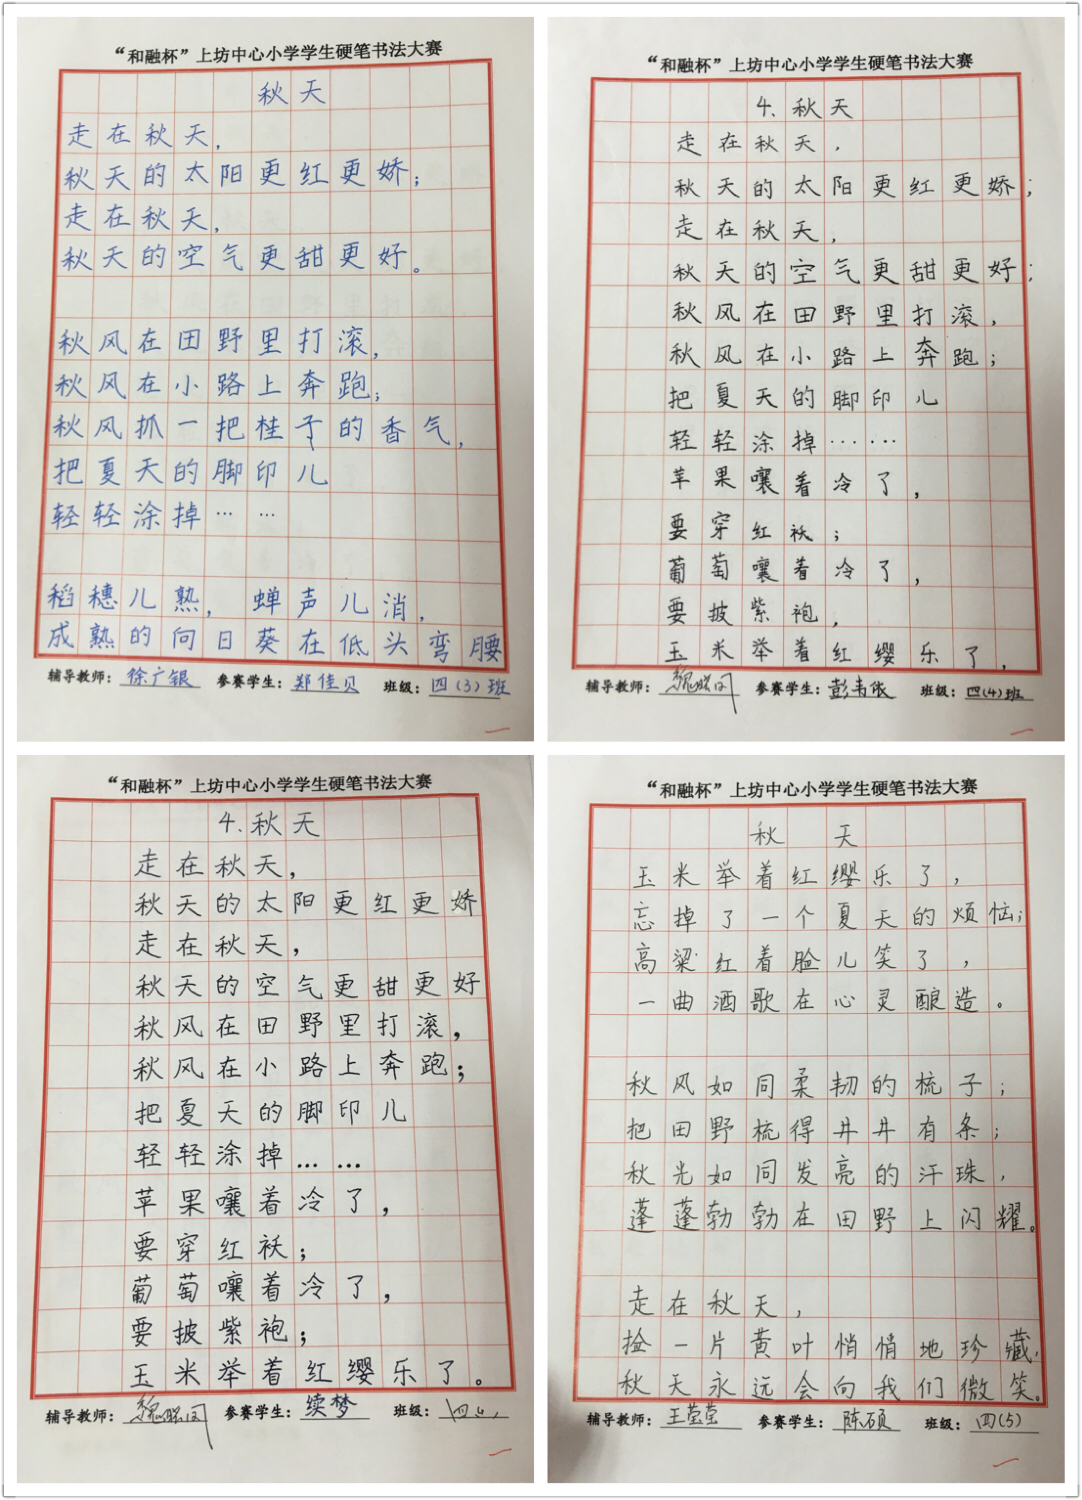 “和融杯”上坊中心小学学生硬笔书法大赛
秋天
走在秋天，
秋天的太阳更红更娇；
走在秋天，
秋天的空气更甜更好。
秋风在田野里打滚，
秋风在小路上奔跑；
秋风抓一把桂子的香气，
把夏天的脚印儿
轻轻涂掉……
稻穗儿熟，蝉声儿消，
成熟的向日葵在低头弯腰
辅导教师：徐广银 参赛学生：郑佳贝 班级：四(3)班
“和融杯”上坊中心小学学生硬笔书法大赛
4.秋天
走在秋天，
秋天的太阳更红更娇；
走在秋天，
秋天的空气更甜更好；
秋风在田野里打滚，
秋风在小路上奔跑；
把夏天的脚印儿
轻轻涂掉……
苹果嚷着冷了，
要穿红袄；
葡萄嚷着冷了，
要披紫袍，
玉米举着红缨乐了，
辅导教师： 参赛学生：彭韦依 班级：四(4)班
“和融杯”上坊中心小学学生硬笔书法大赛
4.秋天
走在秋天，
秋天的太阳更红更娇
走在秋天，
秋天的空气更甜更好
秋风在田野里打滚，
秋风在小路上奔跑；
把夏天的脚印儿
轻轻涂掉……
苹果嚷着冷了，
要穿红袄；
葡萄嚷着冷了，
要披紫袍；
玉米举着红缨乐了。
辅导教师： 参赛学生：续梦 班级：
“和融杯”上坊中心小学学生硬笔书法大赛
秋天
玉米举着红缨乐了，
忘掉了一个夏天的烦恼；
高粱红着脸儿笑了，
一曲酒歌在心灵酿造。
秋风如同柔韧的梳子；
把田野梳得井井有条；
秋光如同发亮的汗珠，
蓬蓬勃勃在田野上闪耀。
走在秋天，
捡一片黄叶悄悄地珍藏，
秋天永远会向我们微笑。
辅导教师：王莹莹 参赛学生：陈硕 班级：四(5)